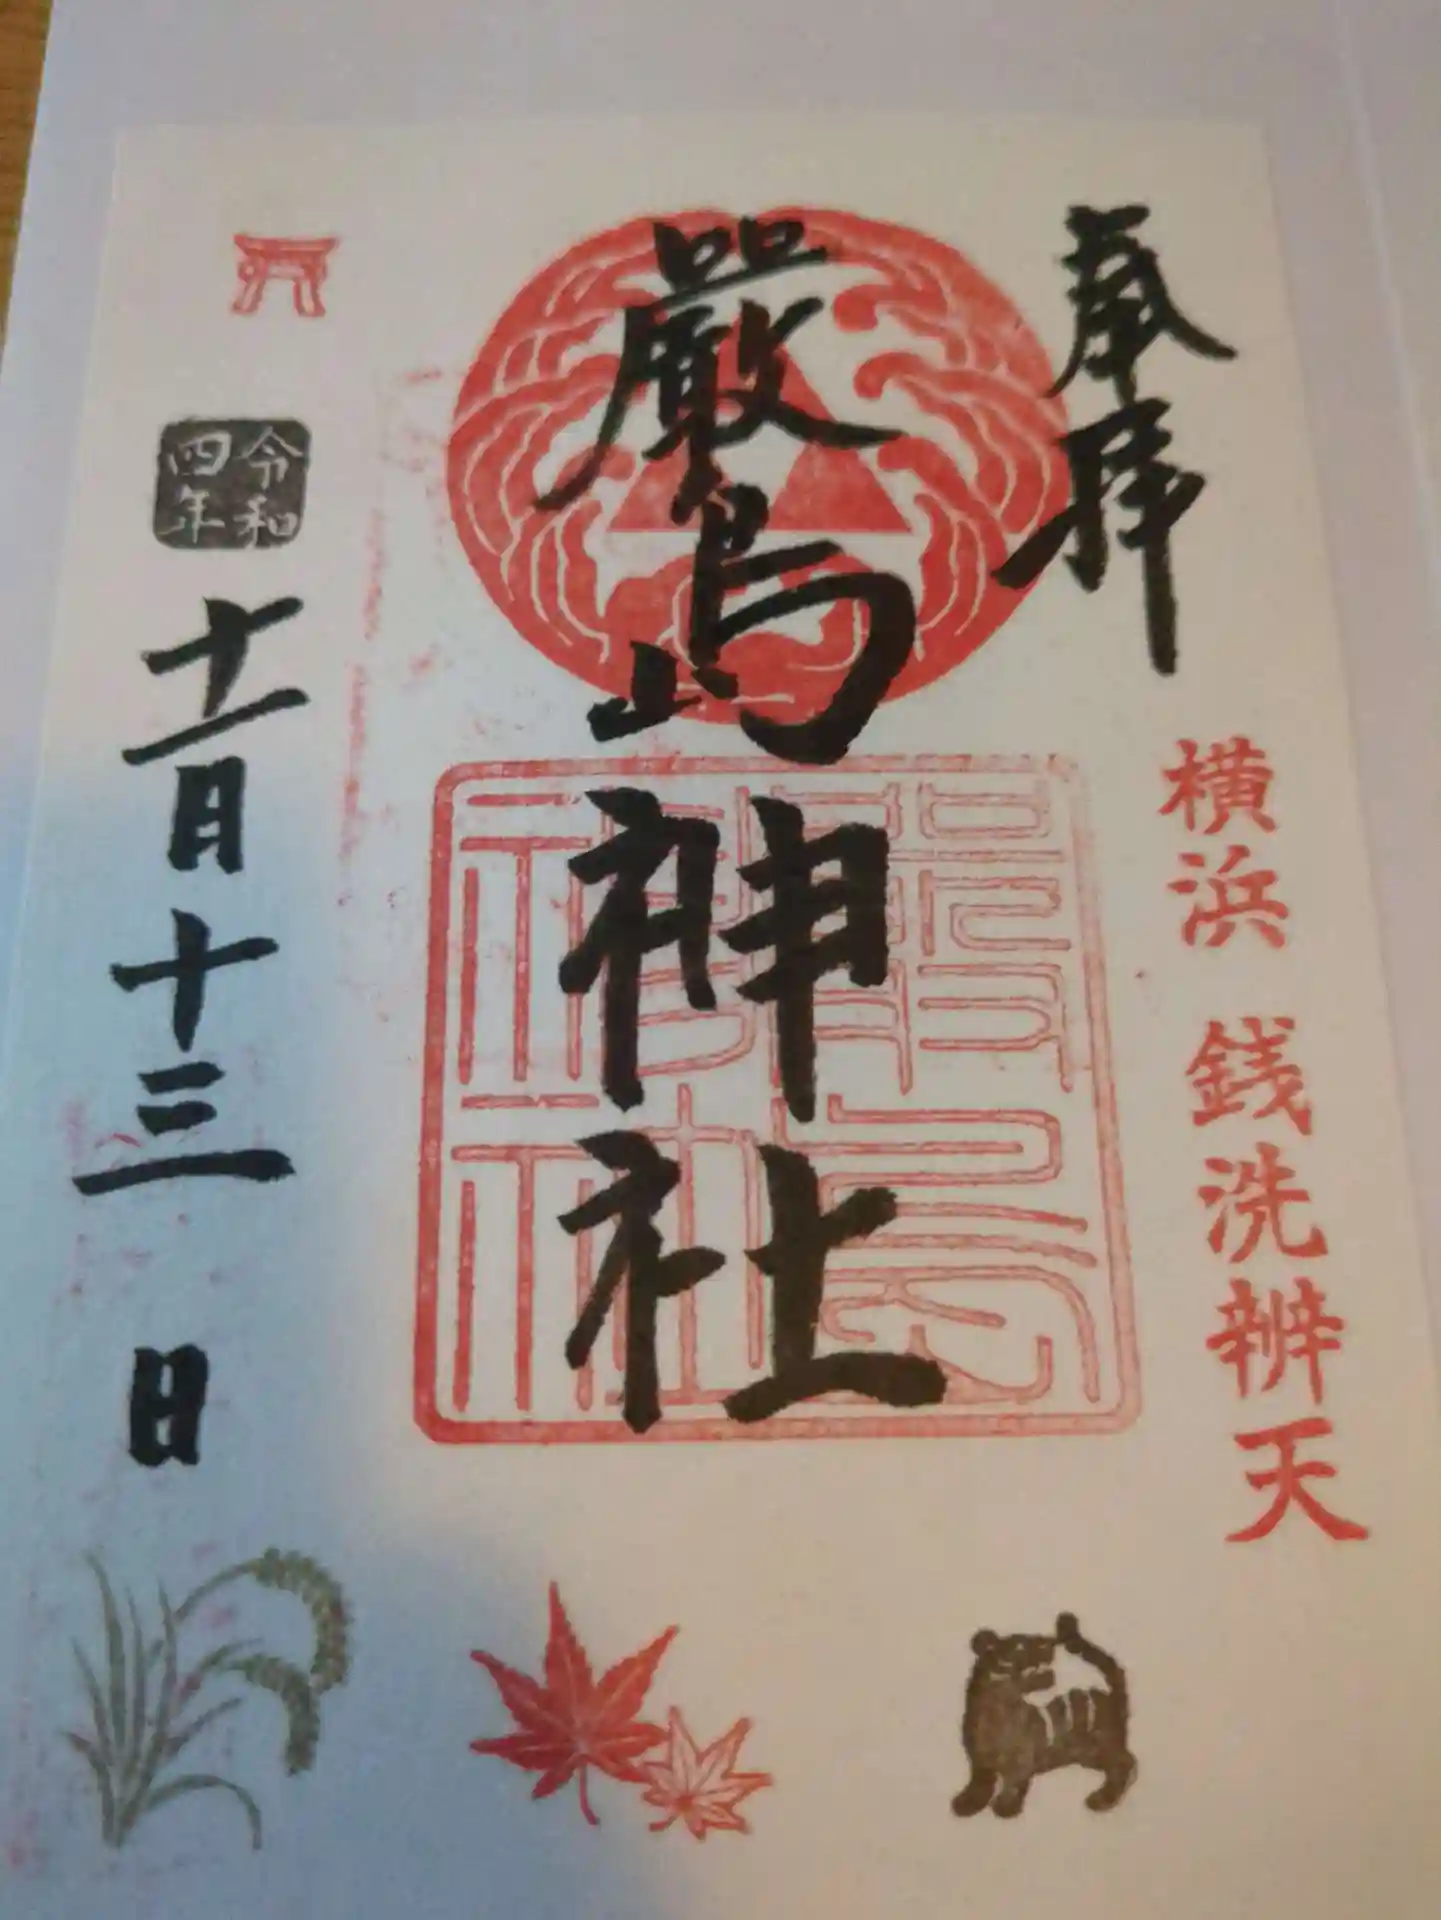 奉拝
横浜 銭洗辨天
嚴島神社
嚴島神社
令和四年
十一月十三日